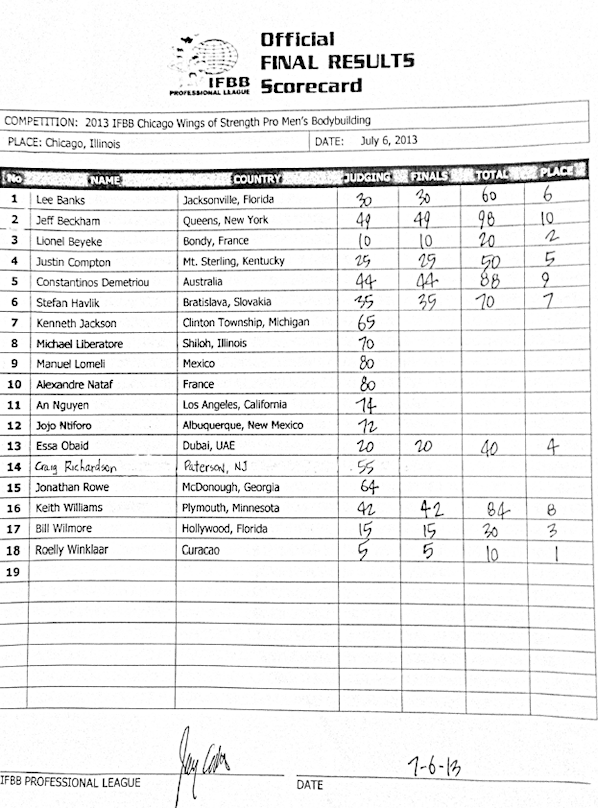 Official
FINAL RESULTS
Scorecard
IFBB
PROFESSIONAL LEAGUE
COMPETITION: 2013 IFBB Chicago Wings of Strength Pro Men's Bodybuilding
PLACE: Chicago, Illinois DATE: July 6, 2013
No NAME COUNTRY JUDGING FINALS TOTAL PLACE
1 Lee Banks Jacksonville, Florida 30 30 60 6
2 Jeff Beckham Queens, New York 49 49 98 10
3 Lionel Beyeke Bondy, France 10 10 20 2
4 Justin Compton Mt. Sterling, Kentucky 25 25 50 5
5 Constantinos Demetriou Australia 44 44 88 9
6 Stefan Havlik Bratislava, Slovakia 35 35 70 7
7 Kenneth Jackson Clinton Township, Michigan 65
8 Michael Liberatore Shiloh, Illinois 70
9 Manuel Lomeli Mexico 80
10 Alexandre Nataf France 80
11 An Nguyen Los Angeles, California 74
12 Jojo Ntiforo Albuquerque, New Mexico 72
13 Essa Obaid Dubai, UAE 20 20 40 4
14 Craig Richardson Paterson, NJ 55
15 Jonathan Rowe McDonough, Georgia 64
16 Keith Williams Plymouth, Minnesota 42 42 84 8
17 Bill Wilmore Hollywood, Florida 15 15 30 3
18 Roelly Winklaar Curacao 5 5 10 1
19
IFBB PROFESSIONAL LEAGUE DATE 7-6-13